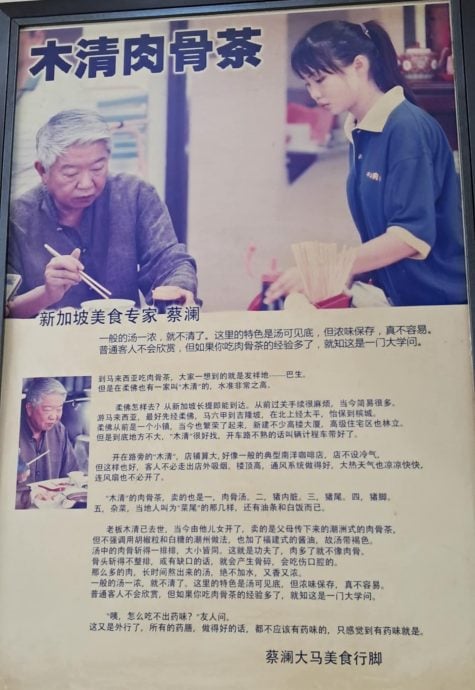 木清肉骨茶
新加坡美食专家 蔡澜
一般的汤一浓，就不清了。这里的特色是汤可见底，但浓味保存，真不容易。
普通客人不会欣赏，但如果你吃肉骨茶的经验多了，就知这是一门大学问。
到马来西亚吃肉骨茶，大家一想到的就是发祥地——巴生。
但是在柔佛也有一家叫“木清”的，水准非常之高。
柔佛怎样去？从新加坡长堤即能到达。从前过关手续很麻烦，当今简易很多。
游马来西亚，最好先经柔佛，马六甲到吉隆坡，在北上经太平，怡保到槟城。
柔佛从前是一个小镇，当今也繁荣了起来，新建不少高楼大厦，高级住宅区也林立。
但是到底地方不大，“木清”很好找，开车路不熟的话叫辆计程车带好了。
开在路旁的“木清”，店铺算大，好像一般的典型南洋咖啡店，店不设冷气。
但这样也好，客人不必走出店外吸烟。楼顶高，通风系统做得好，大热天气也凉凉快快，
连风扇也不必开了。
“木清”的肉骨茶，卖的也是一，肉骨汤，二，猪内脏，三，猪尾，四，猪脚，
五，杂菜，当地人叫为“菜尾”的那几样，还有油条和白饭而已。
老板木清已去世，当今由他儿女开了，卖的是父母传下来的潮洲式的肉骨茶，
但不强调用胡椒粒和白糖的潮州做法，也加了福建式的酱油，故汤带褐色。
汤中的肉骨斩得一排排，大小皆同。这就是功夫了，肉多了就不像肉骨。
骨头斩得不整排，或有缺口的话，就会产生骨碎，会吃伤口腔的。
那么多的肉，长时间熬出来的汤，绝不加水，又香又浓。
一般的汤一浓，就不清了。这里的特色是汤可见底，但浓味保存，真不容易。
普通客人不会欣赏，但如果你吃肉骨茶的经验多了，就知这是一门大学问。
“咦，怎么吃不出药味？”友人问。
这又是外行了，所有的药膳，做得好的话，都不应该有药味的，只感觉到有药味就是。
蔡澜大马美食行脚